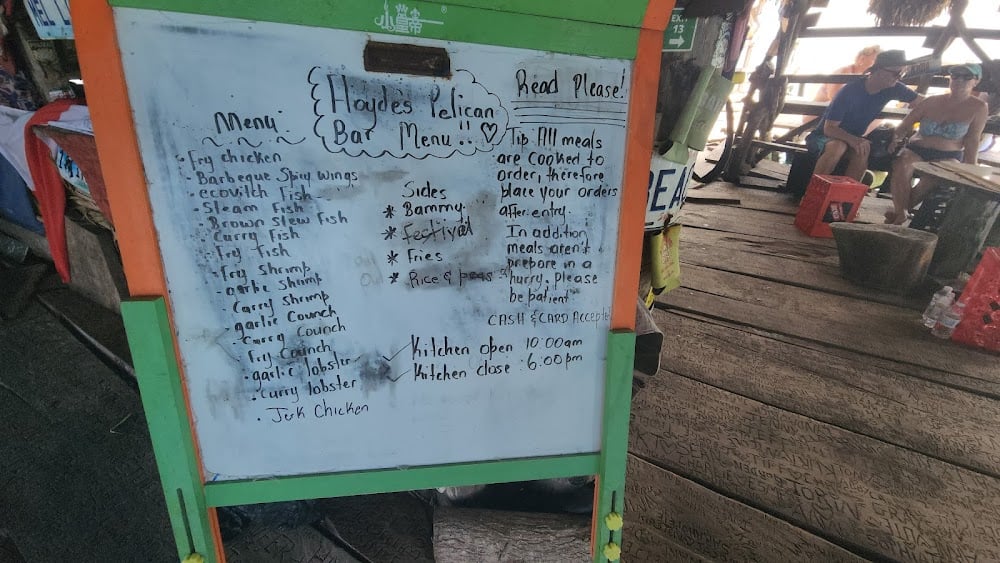 小當帝
EXIT
13
Floyde's Pelican
Bar Menu!!
Menu
• Fry chicken
• Barbeque Spicy wings
• ecovitch Fish
• Steam Fish
• Brown stew Fish
• Curry Fish
• Fry Fish
• Fry shrimp
• garlic Shrimp
• Curry Shrimp
• garlic Counch
• Curry Counch
• Fry Counch
• garlic lobster
• curry lobster
• Jerk Chicken
Sides
* Bammy
* Festival
* Fries
* Rice & peas
Read Please!
Tip All meals
are cooked to
order, therefore
place your orders
after entry.
In addition
meals aren't
prepare in a
hurry, please
be patient
CASH & CARD Accepte
Kitchen open 10:00am
Kitchen close : 6:00pm
PEA